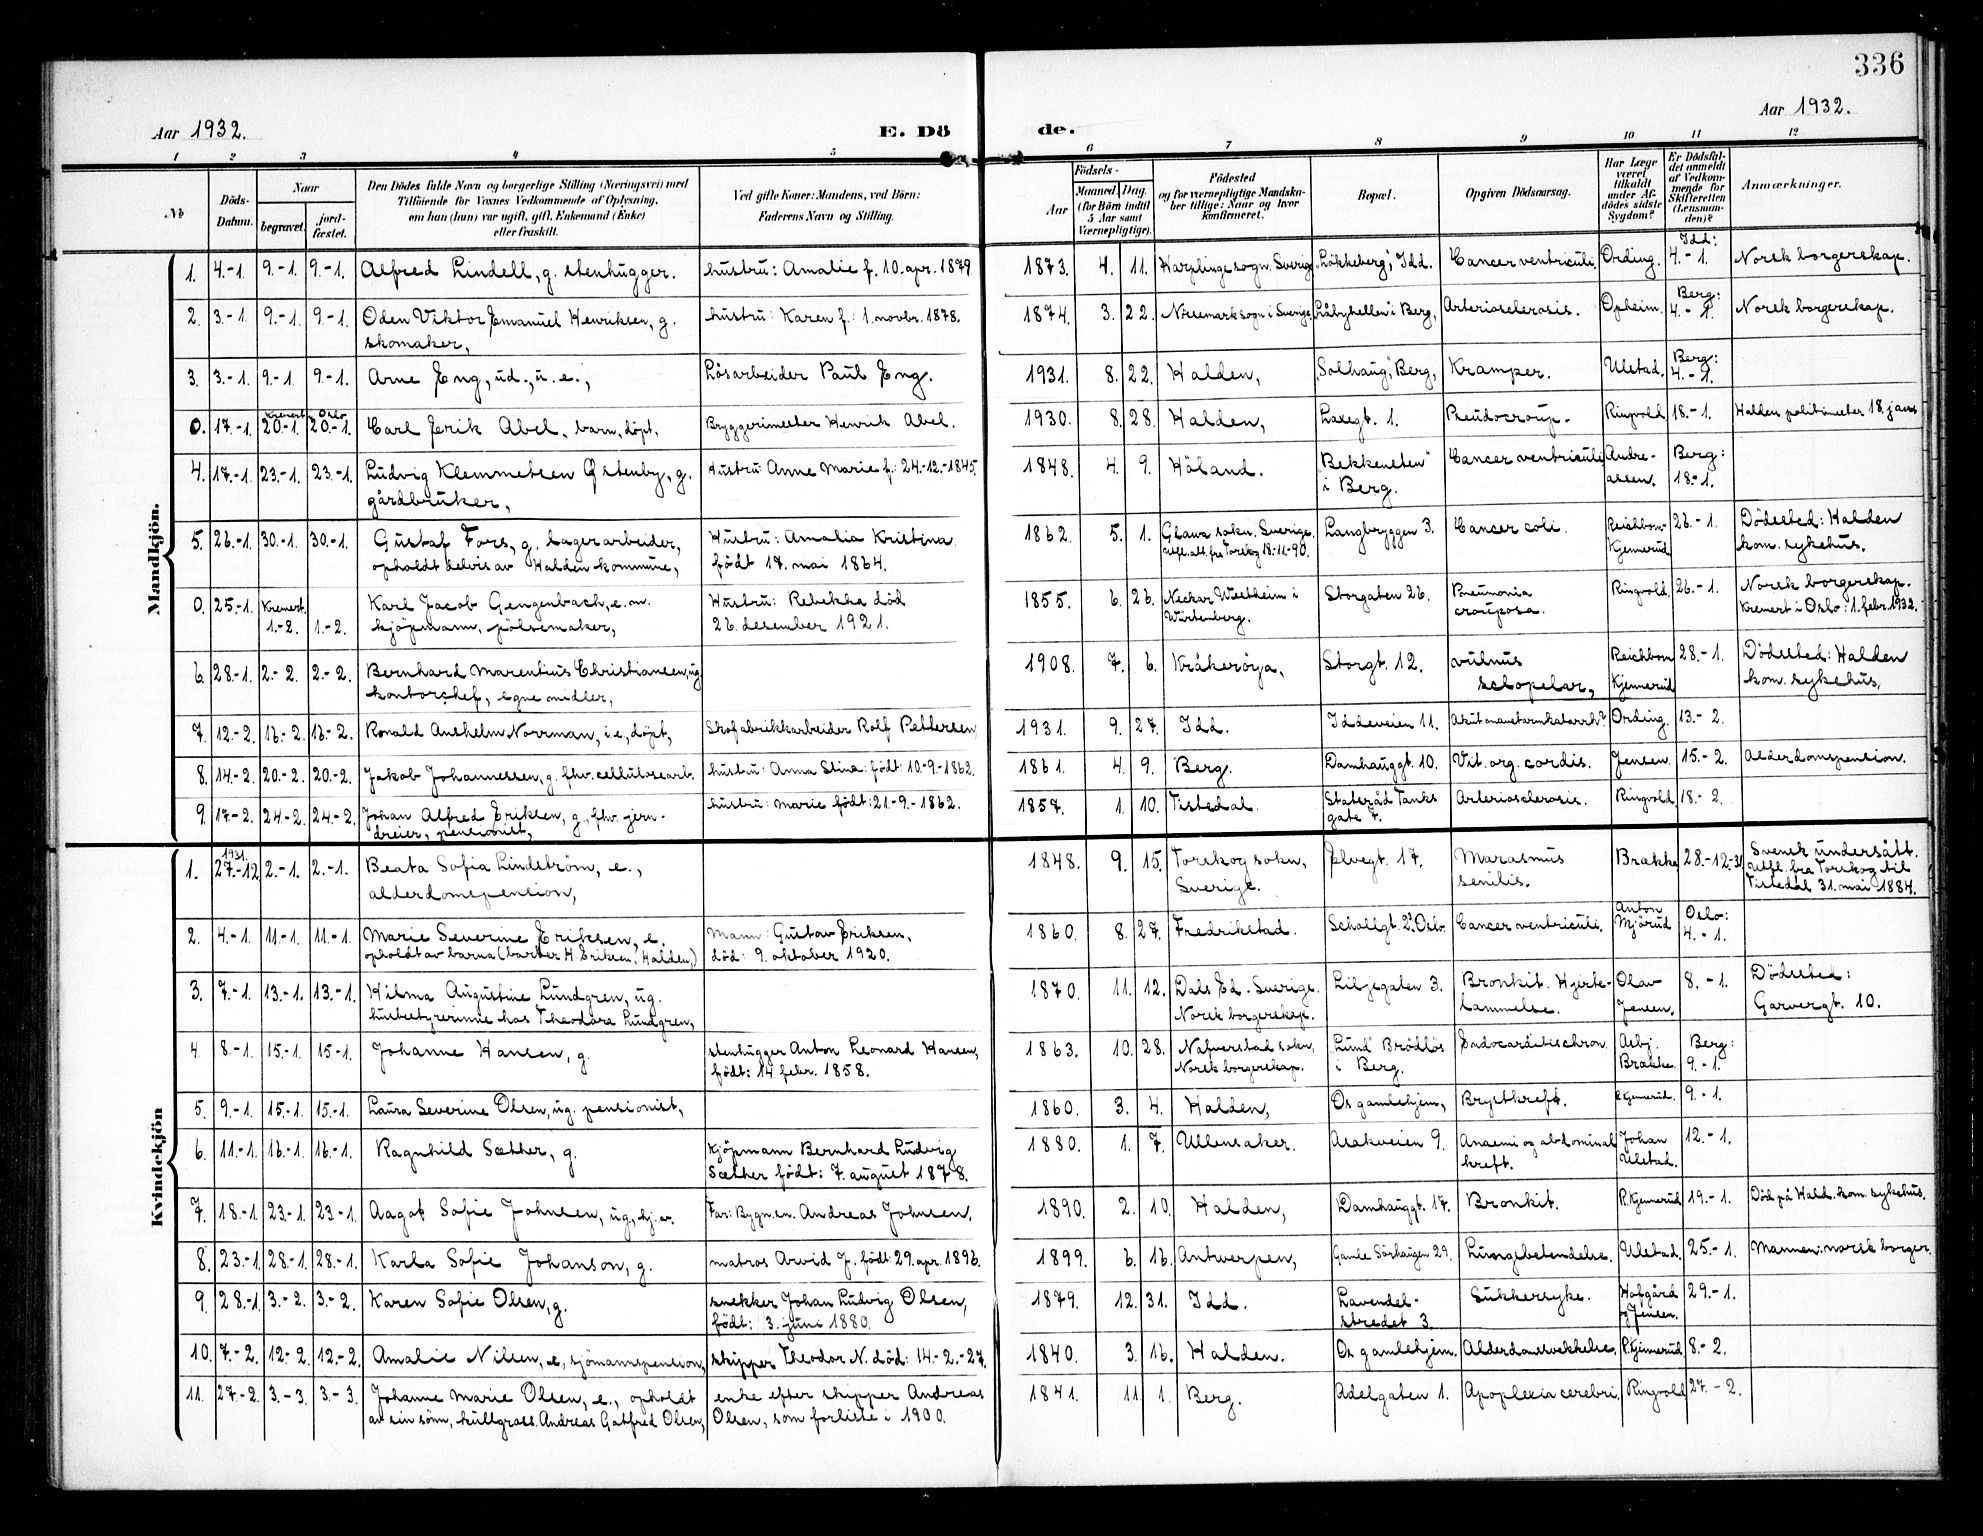 336
Aar 1932.
E. Dö de.
Aar 1932.
1 2 3 4 5 6 7 8 9 10 11 12
No
Döds-Datum.
Naar
begravet.
jord-fæstet.
Den Dödes fulde Navn og borgerlige Stilling (Næringsvei) med
Tilföiende for Voxnes Vedkommende af Oplysning,
om han (hun) var ugift, gift, Enkemand (Enke)
eller fraskilt.
Ved gifte Koner: Mandens, ved Börn:
Faderens Navn og Stilling.
Födsels-
Aar
Maaned. Dag.
(for Börn indtil
5 Aar samt
Værnepligtige).
Födested
og for værnepligtige Mandska-
ber tillige: Naar og hvor
konfirmeret.
Bopæl.
Opgiven Dödsaarsag.
Har Læge
været
tilkaldt
under Af-
dödes sidste
Sygdom?
Er Dödsfal-
det anmeldt
af Vedkom-
mende for
Skifteretten
(Lensman-
den)?
Anmærkninger.
Mandkjön.
1. 4.-1. 9.-1. 9.-1. Alfred Lindell, g. stenhugger. hustru: Amalie f. 10. apr. 1879 1873. 4. 11. Harplinge sogn. Sverige "Lökkeberg", Idd. Cancer ventriculi. Ording. Idd: 4.-1. Norsk borgerskap.
2. 3.-1. 9.-1. 9.-1. Oden Viktor Emanuel Henriksen, g. hustru: Karen f: 1. novbr. 1878. 1874. 3. 22. Nössemark sogn i Sverige, Låbyhellen i Berg, Arteriosclerosis. Opheim. Berg: 4.-1. Norsk borgerskap.
skomaker,
3. 3.-1. 9.-1. 9.-1. Arne Eng, ud., u. e., Lösarbeider Paul Eng. 1931. 8. 22. Halden, "Solhaug", Berg, Kramper. Ulstad. Berg: 4.-1.
0. 17.-1. Kremert 20.-1. Oslo 20.-1. Carl Erik Abel, barn, döpt, Bryggerimester Henrik Abel. 1930. 8. 28. Halden, Laxegt. 1. Pseudocroup. Ringvold 18.-1. Halden politimester 18. jan.
4. 17.-1. 23.-1. 23.-1. Ludvig Klemmetsen Østenby, g. Hustru: Anne Marie f: 24.-12.-1845. 1848. 4. 9. Höland. "Bekkeneten" Cancer ventriculi Andre- Berg:
gårdbruker, i Berg. assen. 18.-1.
5. 26.-1. 30.-1. 30.-1. Gustaf Fors, g. lagerarbeider, Hustru: Amalia Kristina. 1862. 5. 1. Glava sokn. Sverige. Langbryggen 3. Cancer coli. Reichborn- 26.-1. Dödssted: Halden
opholdt delvis av Halden kommune, födt 17. mai 1864. utfl. att. fra Torskog 18.-11.-90. Kjennerud kom. sykehus.
0. 25.-1. Kremert. Karl Jacob Gengenbach, e. m. Hustru: Rebekka död 1855. 6. 26. Neckar Westheim i Storgaten 26. Pneumonia Ringvold. 26.-1. Norsk borgerskap.
1.-2. 1.-2. kjöpmann, pölsemaker, 26. desember 1921. Würtenberg. crouposa. Kremert i Oslo: 1. febr. 1932.
6. 28.-1. 2.-2. 2.-2. Bernhard Marentius Christiansen, ug. 1908. 7. 6. Kråkeröya, Storgt. 12. vulnus Reichborn 28.-1. Dödssted: Halden
kontorchef, egne midler, sclopetar, Kjennerud kom. sykehus.
7. 12.-2. 16.-2. 16.-2. Ronald Anthelm Norrman, i. e., döpt, Skofabrikkarbeider Rolf Pettersen, 1931. 9. 27. Idd. Iddeveien 11. Akut mavetarmkatarrh? Ording. 13.-2.
8. 14.-2. 20.-2. 20.-2. Jakob Johannessen, g. fhv. cellulosearb. hustru: Anna Stina: födt: 10.-9.-1862. 1861. 4. 9. Berg. Damhauggt. 10. Vit. org. cordis. Jensen. 15.-2. Alderdomspension.
9. 17.-2. 24.-2. 24.-2. Johan Alfred Eriksen, g., fhv. jern- hustru: Marie födt: 21.-9.-1862. 1857. 1. 10. Tistedal. Statsråd Tanks Arteriosclerosis. Ringvold 18.-2.
dreier, pensionist, gate 7.
Kvindekjön
1. 1931. 27.-12. 2.-1. 2.-1. Beata Sofia Lindström, e., 1848. 9. 15. Torskog sokn, Elvegt. 17. Marasmus Brække 28.-12.-31 Svensk undersått.
alderdomspension, Sverige. senilis. Utfl. fra Torskog til
Tistedal 31. mai 1884.
2. 4.-1. 11.-1. 11.-1. Marie Severine Eriksen, e. Mann: Gustav Eriksen, 1860. 8. 27. Fredrikstad. Schollgt. 2. Oslo. Cancer ventriculi. Anton Mjörud Oslo: 4.-1.
opholdt av barna (barber H. Eriksen, Halden,) död: 9. oktober 1920.
3. 7.-1. 13.-1. 13.-1. Hilma Augustine Lundgren, ug. 1870. 11. 12. Dals Ed. Sverige. Liljegaten 3. Bronkit. Hjerte- Olav 8.-1. Dödssted:
husbestyrerinne hos Theodore Lundgren, Norsk borgerskap. lammelse. Jensen. Garvergt. 10.
4. 8.-1. 15.-1. 15.-1. Johanne Hansen, g. stenhugger Anton Leonard Hansen, 1863. 10. 28. Nafverstad sokn, "Lund" Brödlös Endocarditis chron. Asbj. Berg:
födt: 14 febr. 1858. Norsk borgerskap. i Berg. Brække. 9.-1.
5. 9.-1. 15.-1. 15.-1. Laura Severine Olsen, ug. pensionist, 1860. 3. 4. Halden, Os gamlehjem, Brystkreft. R. Kjennerud. 9.-1.
6. 11.-1. 16.-1. 16.-1. Ragnhild Sæther, g. Kjöpmann Bernhard Ludvig 1880. 1. 7. Ullensaker. Asakveien 9. Anæmi og abdominal Johan 12.-1.
Sæther födt: 7. august 1878. kreft. Ulstad.
7. 18.-1. 23.-1. 23.-1. Aagot Sofie Johnsen, ug., hj. v. Far: Bygn.en. Andreas Johnsen. 1890. 2. 10. Halden, Damhauggt. 17. Bronkit. R. Kjennerud 19.-1. Död på Hald. kom. sykehus.
8. 23.-1. 28.-1. 28.-1. Karla Sofie Johanson, g. matros Arvid J. födt: 29. apr. 1896. 1899. 6. 16. Antwerpen, Gamle Sörhaugen 29. Lungebetendelse. Ulstad. 25.-1. Mannen: norsk borger.
9. 28.-1. 3.-2. 3.-2. Karen Sofie Olsen, g. snekker Johan Ludvig Olsen, 1879. 12. 31. Idd. Lavendel- Sukkersyke. Hofgård 29.-1.
födt: 3. juni 1880. stredet 3. og Jensen.
10. 7.-2. 12.-2. 12.-2. Amalie Nilsen, e., sjömannspension, skipper Theodor N. död: 14.-2.-27. 1840. 3. 16. Halden. Os gamlehjem. Alderdomsvekkelse. R. Kjennerud 8.-2.
11. 27.-2. 3.-3. 3.-3. Johanne Marie Olsen, e., opholdt enke efter skipper Andreas 1841. 11. 1. Berg. Adelgaten 1. Apoplexia cerebri. Ringvold 27.-2.
av sin sönn, kullgross. Andreas Gotfred Olsen, Olsen, som forliste i 1900.